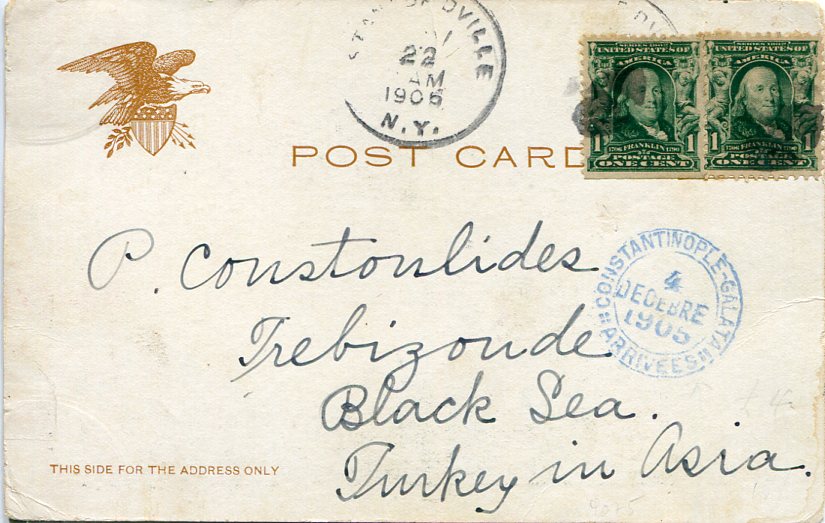 STANFORDVILLE
22
AM
1905
N.Y.
SERIES 1902
UNITED STATES OF
AMERICA
1 1
1706 FRANKLIN 1790
POSTAGE
ONE CENT
SERIES 1902
UNITED STATES OF
AMERICA
1 1
1706 FRANKLIN 1790
POSTAGE
ONE CENT
POST CARD
P. Constonlides
CONSTANTINOPLE-GALATA
4
DECEBRE
1905
ARRIVÉES
Trebizonde
Black Sea.
Turkey in Asia.
THIS SIDE FOR THE ADDRESS ONLY